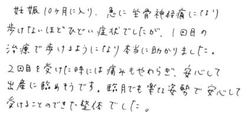 妊娠10ヶ月に入り、急に坐骨神経痛になり
歩けないほどひどい症状でしたが、1回目の
治療で歩けるようになり本当に助かりました。
2回目を受けた時には痛みもやわらぎ、安心して
出産に臨めそうです。臨月でも楽な姿勢で安心して
受けることのできた整体でした。